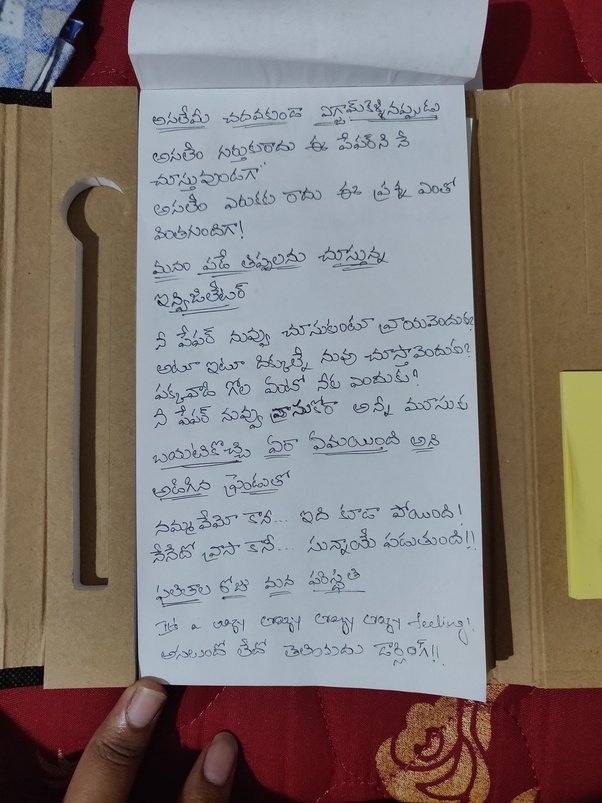 అసలేమీ చదవకుండా ఎగ్జామ్‌కెళ్ళినప్పుడు
అసలేం గుర్తుకురాదు ఈ పేపర్‌ని నే
చూస్తువుండగా
అసలేం ఎరుకకు రాదు ఈ ప్రశ్న ఎంతో
వింతగుందిగా!
మనం పడే తిప్పలను చూస్తున్న
ఇన్విజిలేటర్
నీ పేపర్ నువ్వు చూసుకుంటూ వ్రాయవెందుకు?
అటూ ఇటూ దిక్కుల్నే నువు చూస్తావెందుకు?
పక్కవాడి గోల ఏంటో నీకు ఎందుకు?
నీ పేపర్ నువ్వు రాసుకోరా అన్నీ మూసుకు
బయటికొచ్చి ఏరా ఏమయింది అని
అడిగిన ఫ్రెండుతో
నమ్మవేమో కానీ... ఇది కూడా పోయింది!
నేనేదో వ్రాసా కానీ... సున్నాయే పడుతుంది!!
ఫలితాల రోజు మన పరిస్థితి
It's a feeling!
అసలుందో లేదో తెలియదు డార్లింగ్!!